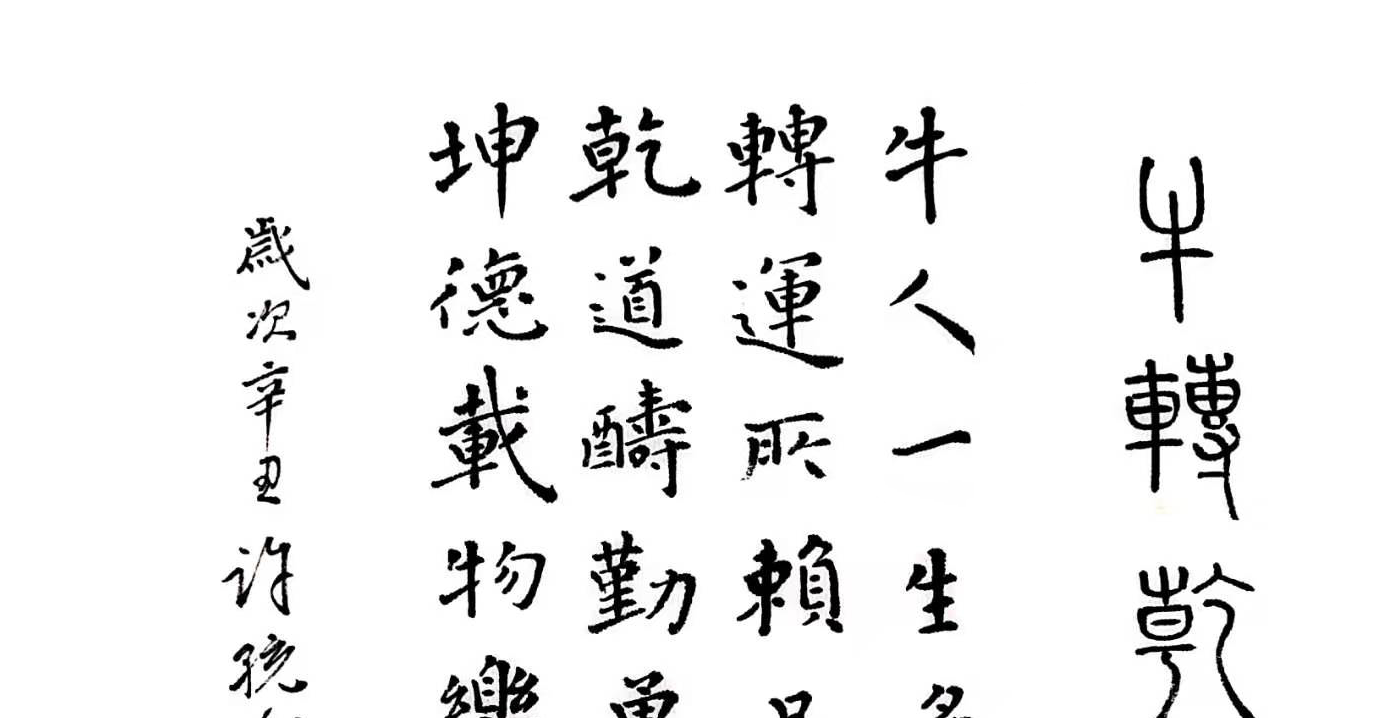 牛轉乾
牛人一生
轉運所賴
乾道醻勤
坤德載物
歲次辛丑許